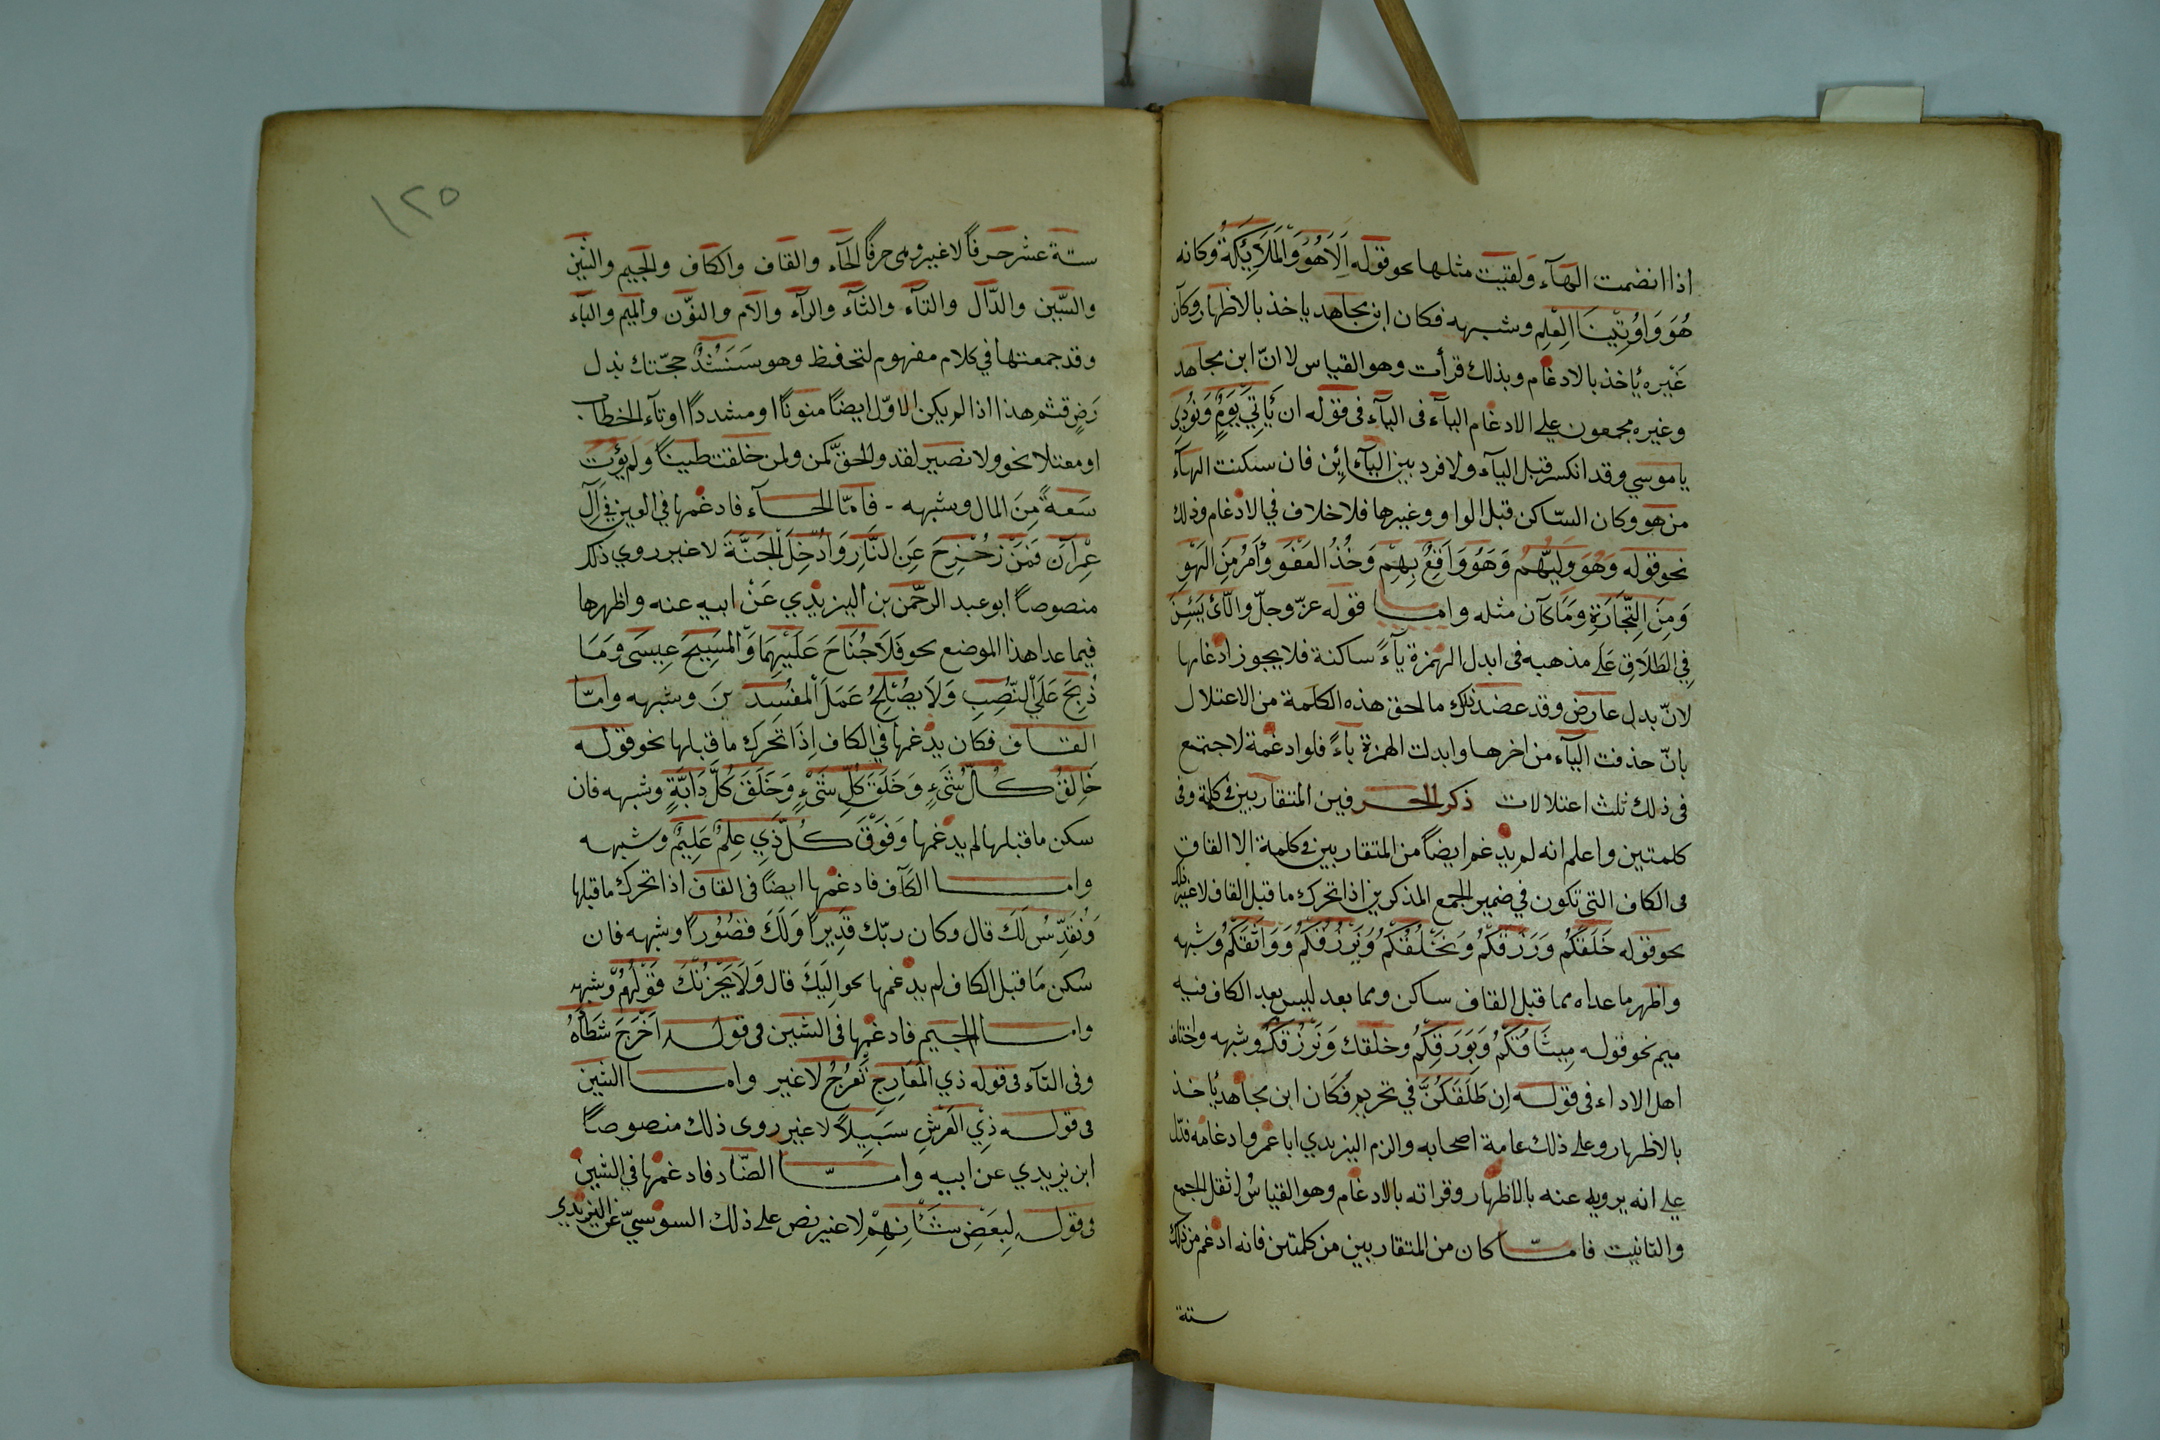 اذا انضمت الهآء ولقيت مثلها نحو قوله اِلَّا هُوَ وَالْمَلَائِكَةُ وكانه
هُوَ وَاوُتِيْنَا الْعِلْمَ وشبهه فكان ابن مجاهد ياخذ بالاظهار وكان
غَيْره ئاخذ بالادغام وبذلك قرأت وهو القياس لانّ ابن مجاهد
وغيره مجمعون على الادغام اليآء فى اليآء فى قوله ان يَّاتِيَ يَوْمٌ وَنُوْدِيَ
يا موسي وقد انكسر قبل اليآء ولا فرد بين اليآ اين فان سكنت الهآء
من هو وكان السّاكن قبل الواو وغيرها فلا خلاف في الادغام وذلك
نحو قوله وَهُوَ وَلِيُّهُمْ وَهَوُ وَاقِعٌ بِهِمْ وَخُذُ العَفْوَ وأْمُرْ مِنَ اللَّهْوِ
وَمِنَ التِّجَارَةِ وَمَا كآن مثله وامـــا قوله عزّ وجلّ والّائ يَئِسْنَ
فِي الطَلَاقِ عَلَى مذهبه فى ابدل الهمزة يآءً ساكنة فلا يجوز ادغامها
لانّ بدل عارض وقد عضد ذلك ما لحق هذه الكلمة من الاعتلال
بانّ حذفت اليآء من اخرها وابدلت الهمزة يآءً فلو ادغمة لاجتمع
فى ذلك ثلث اعتلالات ذكر الحــرفين المتقاربين في كلمة وفى
كلمتين واعلم انه لم يدغم ايضاً من المتقاربين في كلمة الا القاف
فى الكاف التى تكون في ضمير الجمع المذكرين اذا تحرك ما قبل القاف لاغير ذلك
نحو قوله خَلَقَكُمْ وَرَزَقَكُمْ وَنَخْلُقُكُمْ وُيَرْزُقُكُمْ وَوَاثَقَكُمْ وشبهه
واظهر ما عداه مما قبل القاف ساكن ومما بعد ليس بعد الكاف فيه
ميم نحو قوله مِيثَاقَكُمْ وَبِوَرَقِكُمْ وخلقك وَنَرْزُقَكُ وشبهه واختلف
اهل الاداء فى قولــه اِن طَلَقَكُنَّ في تحريم فَكَان ابن مجاهد ئاخذ
بالاظهار وعلى ذلك عامة اصحابه والزم اليزيدي ابا عمر وادغامه فدّل
على انه يرويه عنه بالاظهار وقراته بالادغام وهو القياس لثقل الجمع
والتانيث فامّــا كان من المتقاربين من كلمتين فانه ادغم من ذلك
ستة
١٢٥
ستّة عشر حرفاً لاغير وهى حرفاً الحآء والقاف والكاف والجيم والشين
والسّين والدّال والتآء والثآء والرآء والام والنوّن والميم والبآء
وقد جمعتها في كلام مفهوم لتحفظ وهو سَنَشُدُّ حجّتك بذل
رَضٍ قثم هذا اذا لم يكن الاوّل ايضاً منوناً او مشدداً او تآء الخطاب
او معتلا نحو ولا نصير لقد والحقّ كمن ولمن خلقت طيناً وَلَم يؤت
سَعةً مِنَ المال وشبهه - فامّا الحـــآء فادغمها في العين في آلِ
عِمْرآن فَمَنْ زُحْزِحَ عَنِ النَّارِ وَاُدْخِلَ الْجَنَّةَ لاغير روي ذلك
منصوصاً ابو عبد الرحّمن بن اليزيدي عَنْ ابيه عنه واظهرها
فيما عدا هذا الموضع نحو فَلَا جُنَاحَ عَلَيْهِمَا وَالْمَسِيحَ عِيسَى وَمَا
ذُبِحَ عَلَي النُّصُبِ وَلَا يصُلِحُ عَمَلَ الْمفُسِدِينَ وشبهه وامّــا
القــاف فكان يدغمها في الكاف اِذَا تحرك ما قبلها نحو قولــه
خَالِقُ كُلِّ شَىْءٍ وَخَلَقَ كُلِّ شَىْءٍ وَخَلَقَ كُلَّ دَابَّةٍ وشبهه فان
سكن ما قبلها لم يدغمها وَفَوْقَ كُلِّ ذِي عِلْمٍ عَلِيْمٌ وشبهــه
وامــــا الكآف فادغمها ايضاً فى القاف اذا تحرك ما قبلها
وَنُقَدِّسُ لَكَ قال وكان ربّك قَدِيراً وَلَكَ قصُوُراً وشبهه فان
سكن مَا قبل الكاف لم يدغمها نحو اِلَيْكَ قال وَلَا يَحْزُنْكَ قَوْلُهُمْ وشبهه
وامـــا الجيم فادغمها فى الشين فى قولــه اَخْرَجَ شَطْأَهُ
وفى التآء فى قوله ذي الْمَعَارِجِ تَعْرُجُ لاغير وامـــا الشين
فى قولــه ذِي الْعَرْشِ سَبِيلاً لاغير روى ذلك منصوصــاً
ابن يزيدي عن ابيه وامّـــا الضّاد فادغمها في الشين
فى قولــه لِبَعْضِ شَأْنِهِمْ لاغير نص على ذلك السوسيّ عن اليزيدي